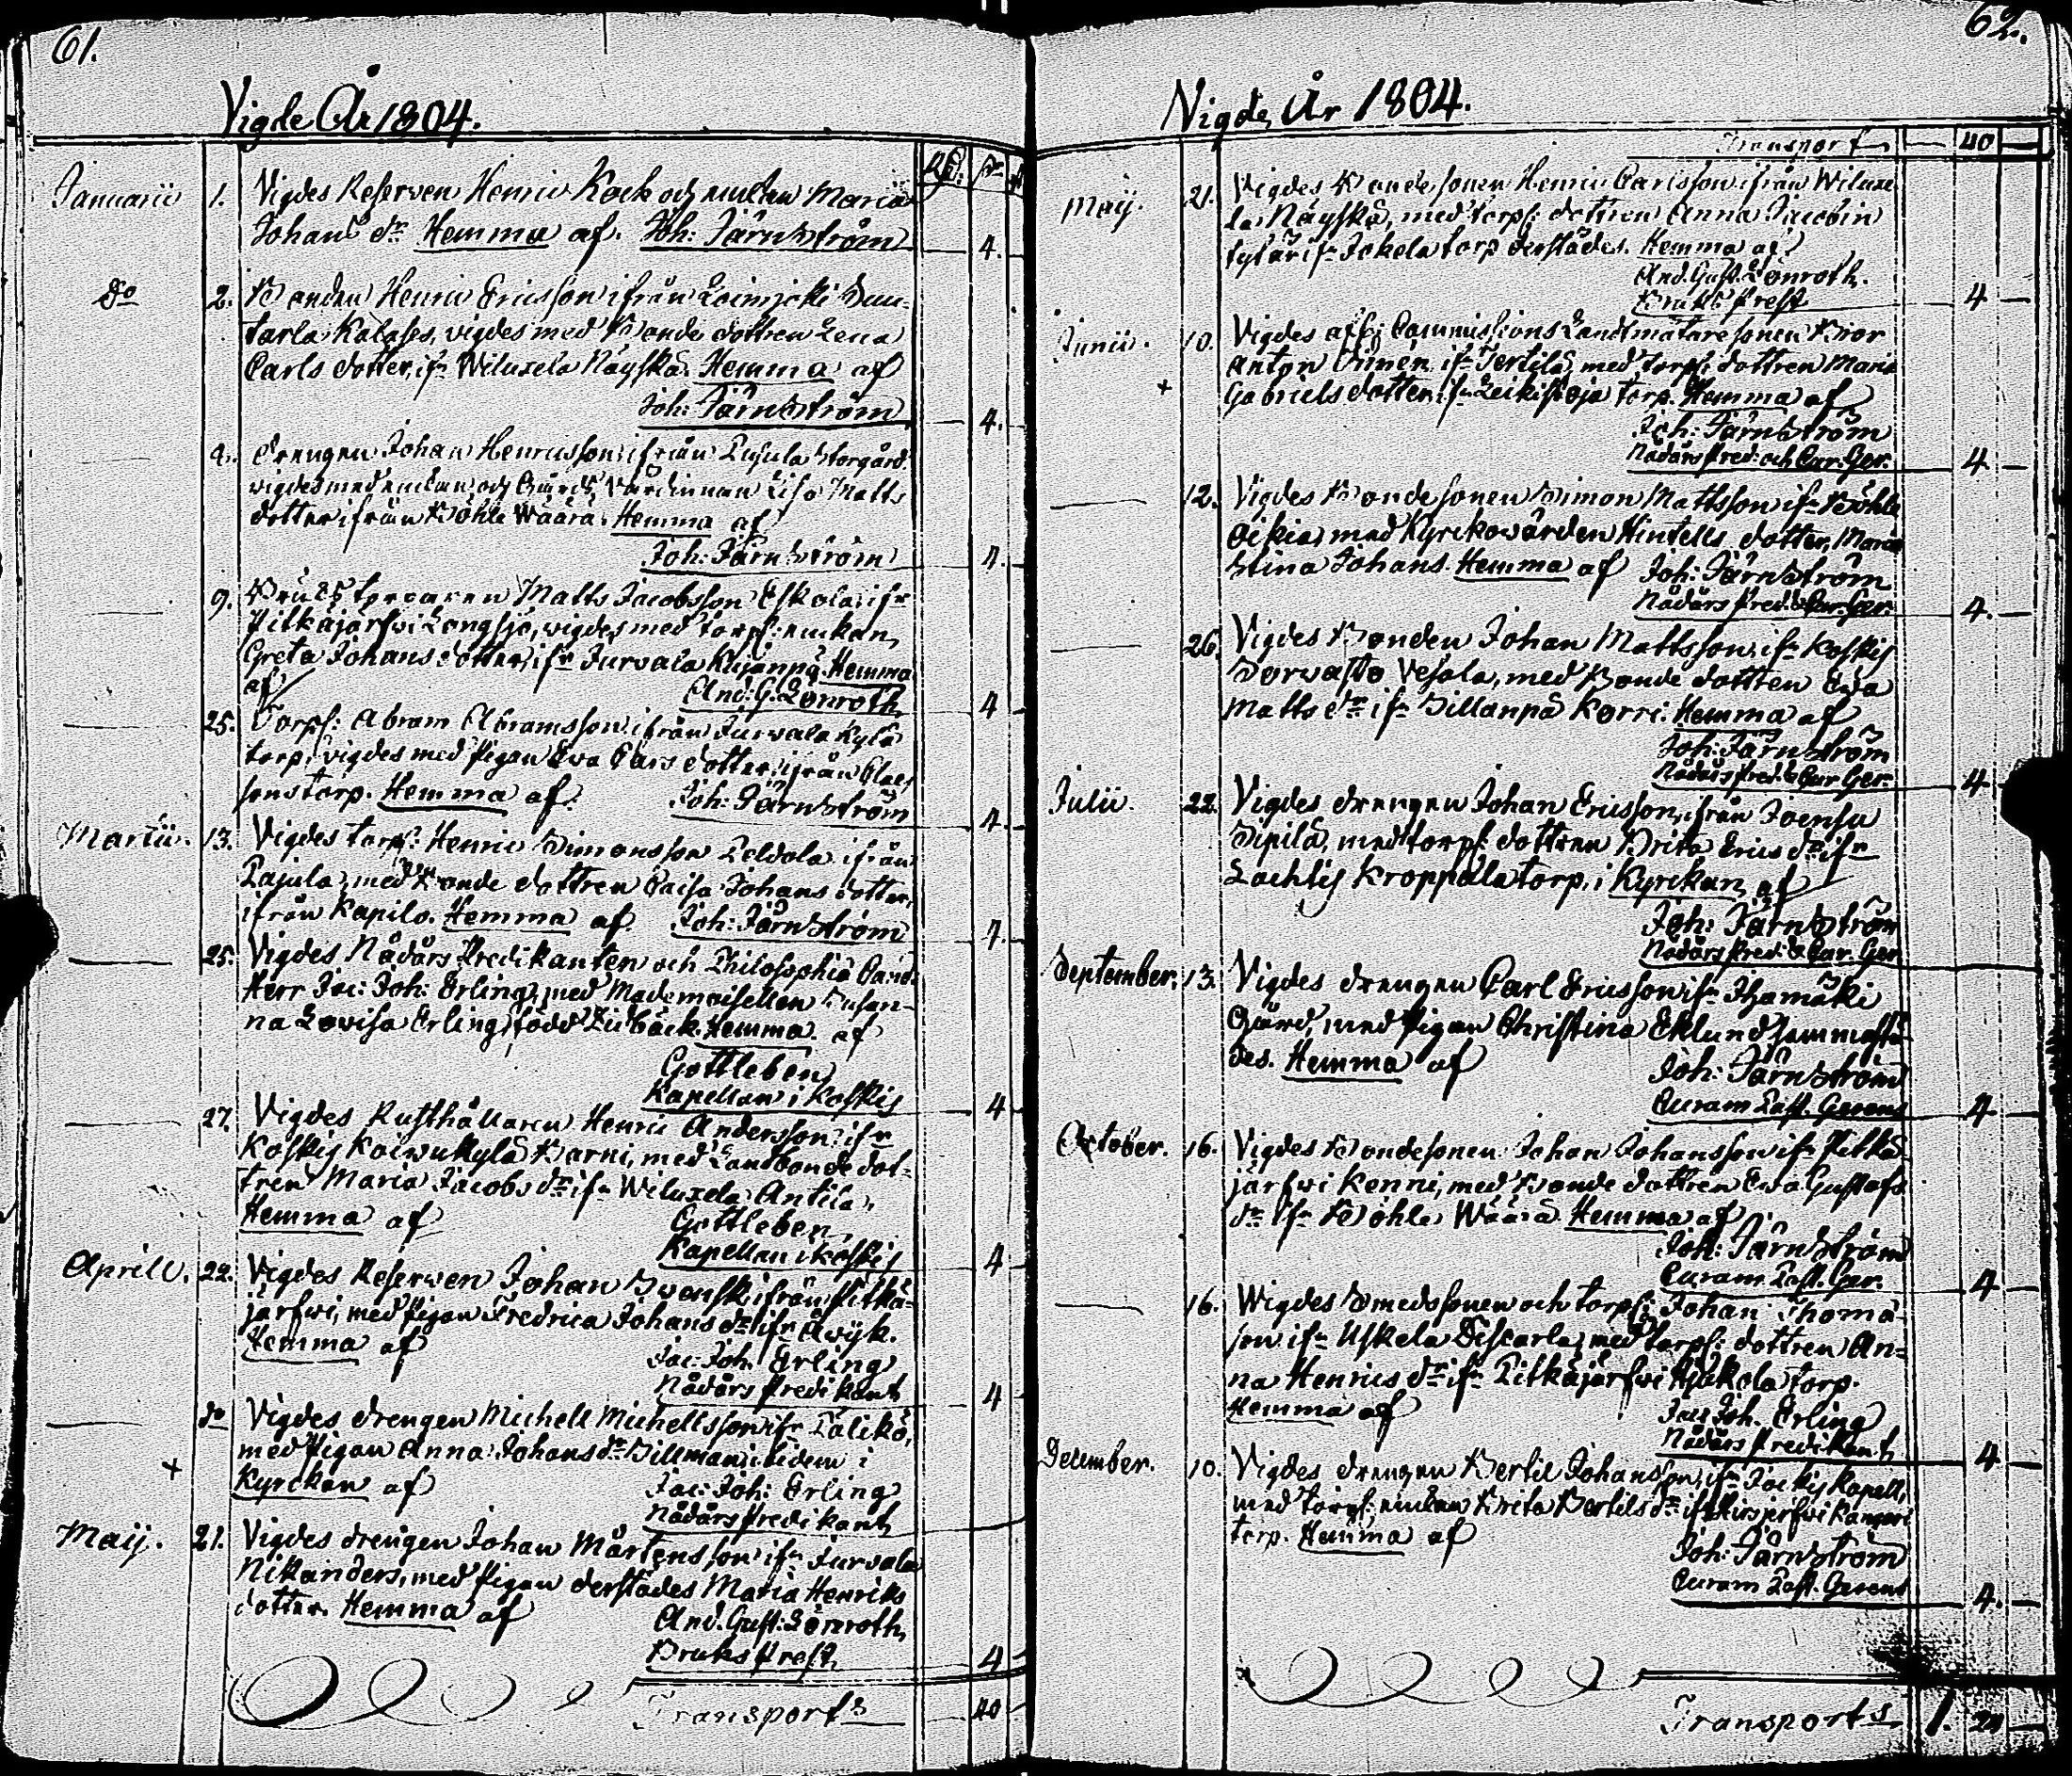 61.
Vigde År 1804.
Rd. ß
Januarii 1. Vigdes Reserven Henric Kock och enckan Maria
Johans dr Hemma af. Joh: Järnström 4.
do 2. Bonden Henric Ericsson ifrån Loimjoki Sun-
tarla Kalases, vigdes med Bonde dottren Lena
Carls dotter, ifr Wiluxela Näyskä Hemma af
Joh: Järnström 4.
Drengen Johan Henricsson ifrån Storgård.
vigdes med enckan och Lisa Matts
dotter ifrån Böhle Wäärä. Hemma af
Joh: Järnström 4.
9. Matts Jacobsson Eskola, ifr
Pitkäjärfwi Långsjö, vigdes med torp: enckan
Greta Johans dotter, ifr Jurvala Kujanpä. Hemma
af And: G. Lönroth 4
25. Torp: Abram Abramsson ifrån Jurvala Kylä
torp, vigdes med Pigan Eva Lars dotter, ifrån Claes
sons torp. Hemma af. Joh: Järnström 4.
Martii. 13. Vigdes torp: Henric Simonsson Peldola ifrån
Pajula, med Bonde dottren Caisa Johans dotter,
ifrån Kapilo. Hemma af Joh: Järnström
25. Vigdes Nådårs Predikanten och Philosophiæ Cand.
Herr Jac: Joh: Erling, med Mademoisellen Susan-
na Lovisa Erling, född Hemma. af
Gottleben
Kapellan i Koskis 4
27. Vigdes Rusthållaren Henric Andersson ifr
Koskis Koiwukylä Barni, med Landbonde dot-
tren Maria Jacobs dr ifr Wiluxela Antila,
Hemma af Gottleben
Kapellan i Koskis 4
Aprill. 22. Vigdes Reserven Johan Svensk ifrån Pitkä-
järfwi, med Pigan Fredrica Johans dr ifr Åvijk.
Hemma af Jac: Joh: Erling
Nådårs Predikant 4
do Vigdes drengen Michell Michellsson ifr Palikä,
med Pigan Anna Johans dr Sillman ibidem i
+ Kyrckan af Jac: Joh: Erling
Nådårs Predikant
Maij. 21. Vigdes drengen Johan Mårtensson ifr Jurvala
Nikanders, med Pigan derstädes Maria Henriks
dotter. Hemma af And. Gust: Lönroth,
Bruks Prest, 4
Transport 40
62.
Vigde År 1804.
Transport 40
Maij. 21. Vigdes Bonde sonen Henric Carlsson ifrån Wiluxe
la, Näyskä, med torp: dottren Anna Jacobin
tytär ifr Jokela torp derstädes. Hemma af
And. Gust. Lönroth.
Bruks Prest 4
Junii. 10. Vigdes Commissions Landtmätare sonen Bror
Anton ifr Pertilä, med torp: dottren Maria
+ Gabriels dotter ifr torp. Hemma af
Joh: Järnström
Nådårs Pred: och Cur: Ger: 4.
12. Vigdes Bonde sonen Simon Mattsson ifr Böhle
Oikia, med Kyrckowärden Hintells dotter, Maria
Stina Johans. Hemma af Joh: Järnström
Nådårs Pred: & Cur: Ger: 4.
26. Vigdes Bonden Johan Mattsson, ifr Koskis
Sorvasto Vesala, med Bonde dottren Eva
Matts dr ifr Sillanpä Korri. Hemma af
Joh: Järnström
Nådårs Pred: & Cur. Ger: 4
Julii. 22. Vigdes drengen Johan Ericsson, ifrån Joensu
Sipilä, med torp: dottren Brita Erics dr ifr
Lachtis Kroppala torp, i Kyrckan af
Joh: Järnström
Nådårs Pred: & Cur. Ger
September. 13. Vigdes drengen Carl Ericsson ifr Ihamäki
Gård, med Pigan Christina Eklund sammastä
des. Hemma af Joh: Järnström
Curam Past. Gerens 4
October. 16. Vigdes Bondesonen Johan Johansson ifr Pitkä-
järfwi Kenni, med Bonde dottren Eva Gustafs
dr ifr Böhle Wäärä. Hemma af
Joh: Järnström
Curam Past. Ger. 4
16. Wigdes Smedssonen och torp: Johan Thoma-
son ifr Uskela med torp: dottren An-
na Henrics dr ifr Pitkäjärfwi torp.
Hemma af Jac Joh. Erling
Nådårs Predikant 4
December. 10. Vigdes drengen Bertil Johansson, ifr Kapell,
med torp: enckan Brita Bertils dr ifr
torp. Hemma af Joh: Järnström
Curam Past. Gerens 4.
Transport 1.